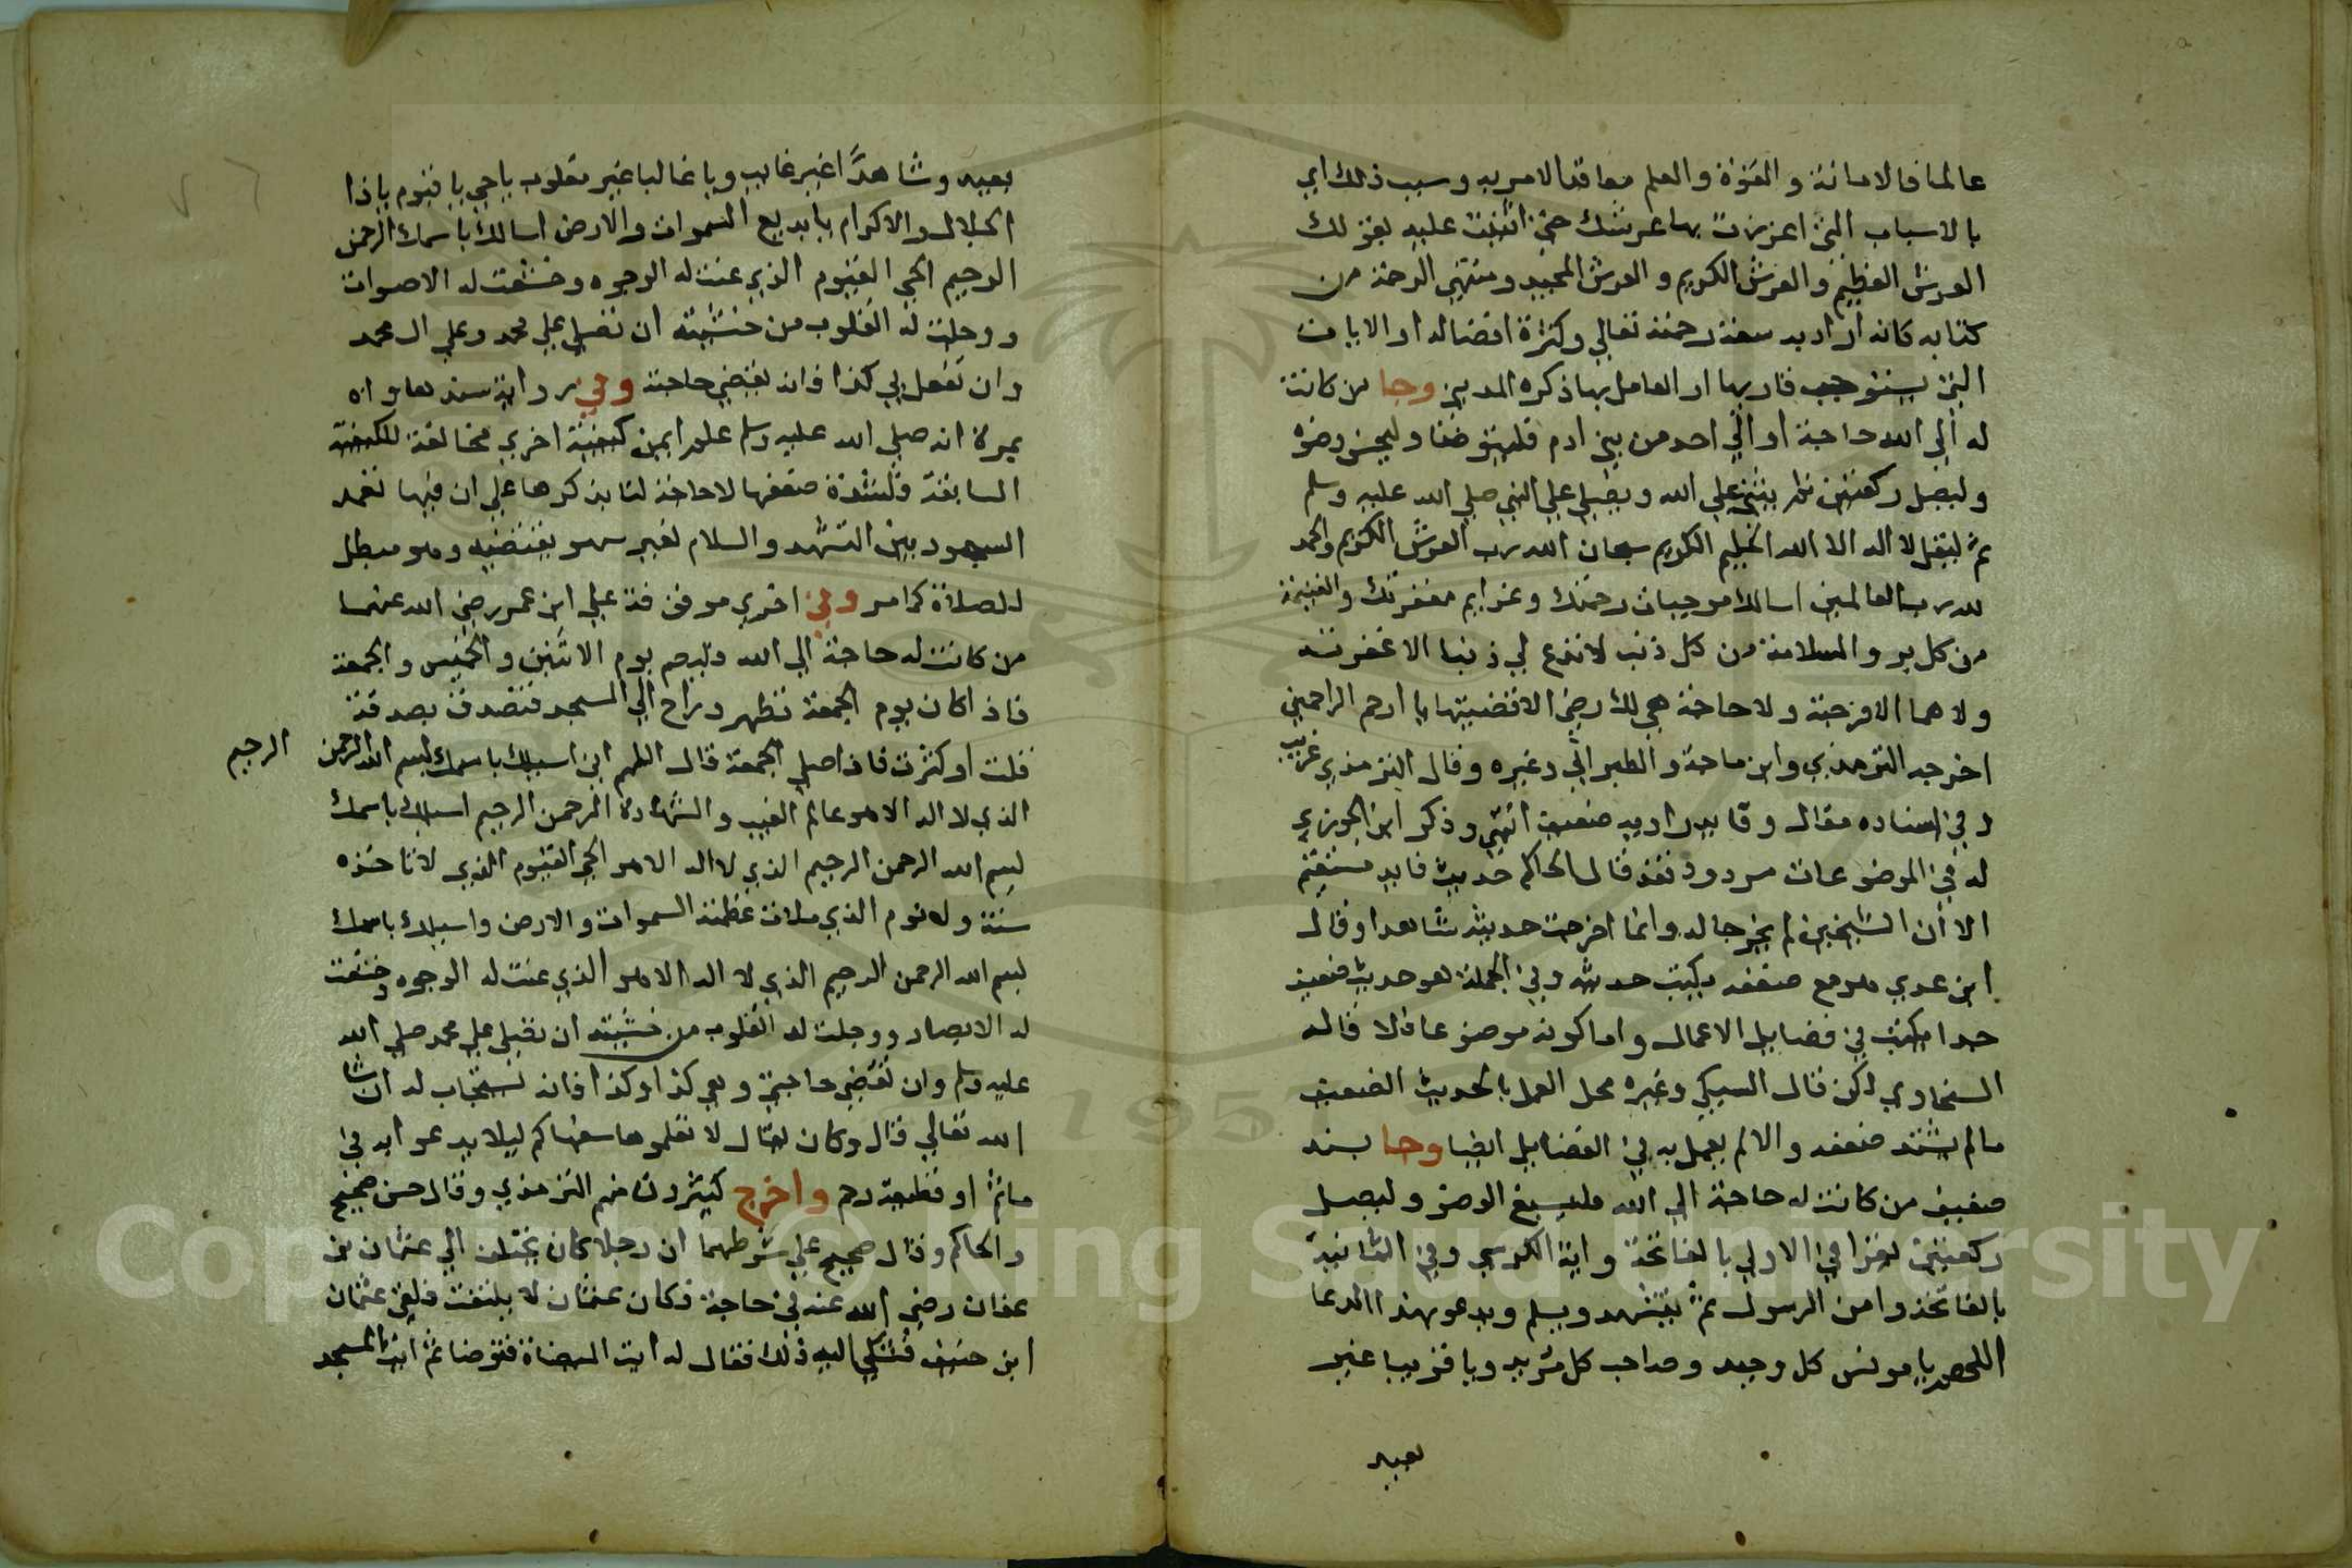 عالما فالامانة والقوة والعلم معاقد الامر به وسبب ذلك اي
بالاسباب التي اعززت بها عرشك حتي اثنيت عليه بقولك
العرش العظيم والعرش الكريم والعرش المجيد ومنتهي الرحمة من
كتابه كانه اراد به سعة رحمته تعالي وكثرة افضاله او الايات
التي يستوجب قاريها او العامل بها ذكره المديني وجا من كانت
له الي الله حاجة او الي احد من بني ادم فليتوضا وليحسن وضوه
وليصل ركعتين ثم يثني علي الله ويصلي علي النبي صلي الله عليه وسلم
ثم ليقل لا اله الا الله الحليم الكريم سبحان الله رب العرش الكريم والحمد
لله رب العالمين اسالك موجبات رحمتك وعزايم مغفرتك والغنيمة
من كل بر والسلامة من كل ذنب لا تدع لي ذنبا الا غفرته
ولا هما الا فرجته ولا حاجة هي لك رضي الا قضيتها يا ارحم الراحمين
اخرجه الترمذي وابن ماجة والطبراني وغيره وقال الترمذي غريب
وفي اسناده مقال وقايد راويه ضعيف انتهي وذكر ابن الجوزي
له في الموضوعات مردود فقد قال الحاكم حديث فايد مستقيم
الا ان الشيخين لم يخرجا له وانما اخرجت حديثه شاهدا وقال
ابن عدي هو مع ضعفه يكتب حديثه وفي الجملة هو حديث ضعيف
جدا يكتب في فضايل الاعمال واما كونه موضوعا فلا قاله
السخاوي لكن قال السبكي وغيره محل العمل بالحديث الضعيف
مالم يشتد ضعفه والا لم يعمل به في الفضايل ايضا وجا بسند
ضعيف من كانت له حاجة الي الله فليسبغ الوضو وليصل
ركعتين يقرا في الاولي بالفاتحة واية الكرسي وفي الثانية
بالفاتحة وامن الرسول ثم يتشهد ويسلم ويدعو بهذا الدعا
اللهم يا مونس كل وحيد وصاحب كل فريد ويا قريبا غير
بعيد
بعيد وشاهدا غير غايب ويا غالبا غير مغلوب يا حي يا قيوم يا ذا
الجلال والاكرام يا بديع السموات والارض اسالك باسمك الرحمن
الرحيم الحي القيوم الذي عنت له الوجوه وخشعت له الاصوات
ووجلت له القلوب من خشيته ان تصلي علي محمد وعلي ال محمد
وان تفعل بي كذا فانه تقضي حاجته وفي رواية سندها واه
بمرة انه صلي الله عليه وسلم علم ايمن كيفية اخري مخالفة للكيفية
السابقة ولشدة ضعفها لا حاجة لنا بذكرها علي ان فيها تعمد
السجود بين التشهد والسلام لغير سهو يقتضيه وهو مبطل
للصلاة كما مر وفي اخري موقوفة علي ابن عمر رضي الله عنهما
من كانت له حاجة الي الله وليصم يوم الاثنين والخميس والجمعة
فاذا كان يوم الجمعة تطهر وراح الي المسجد فتصدق بصدقة
قلت او كثرت فاذا صلي الجمعة قال اللهم اني اسيلك باسمك بسم الله الرحمن الرحيم
الذي لا اله الا هو عالم الغيب والشهادة الرحمن الرحيم اسيلك باسمك
بسم الله الرحمن الرحيم الذي لا اله الا هو الحي القيوم الذي لا تاخذه
سنة ولا نوم الذي ملات عظمته السموات والارض واسيلك باسمك
بسم الله الرحمن الرحيم الذي لا اله الا هو الذي عنت له الوجوه وخشعت
له الابصار ووجلت له القلوب من خشيته ان تصلي علي محمد صلي الله
عليه وسلم وان تقضي حاجتي وهي كذا وكذا فانه تستجاب له ان شا
الله تعالي قال وكان يقال لا تعلموها سفهاكم ليلا يدعو ابه في
ماثم او قطيعة رحم واخرج كثيرون منهم الترمذي وقال حسن صحيح
والحاكم وقال صحيح علي شرطهما ان رجلا كان يختلف الي عثمان بن
عفان رضي الله عنه في حاجة فكان عثمان لا يلتفت فلقي عثمان
ابن حنيف فشكي اليه ذلك فقال له ايت الميضاة فتوضا ثم ايت المسجد
Copyright © King Saud University
1957